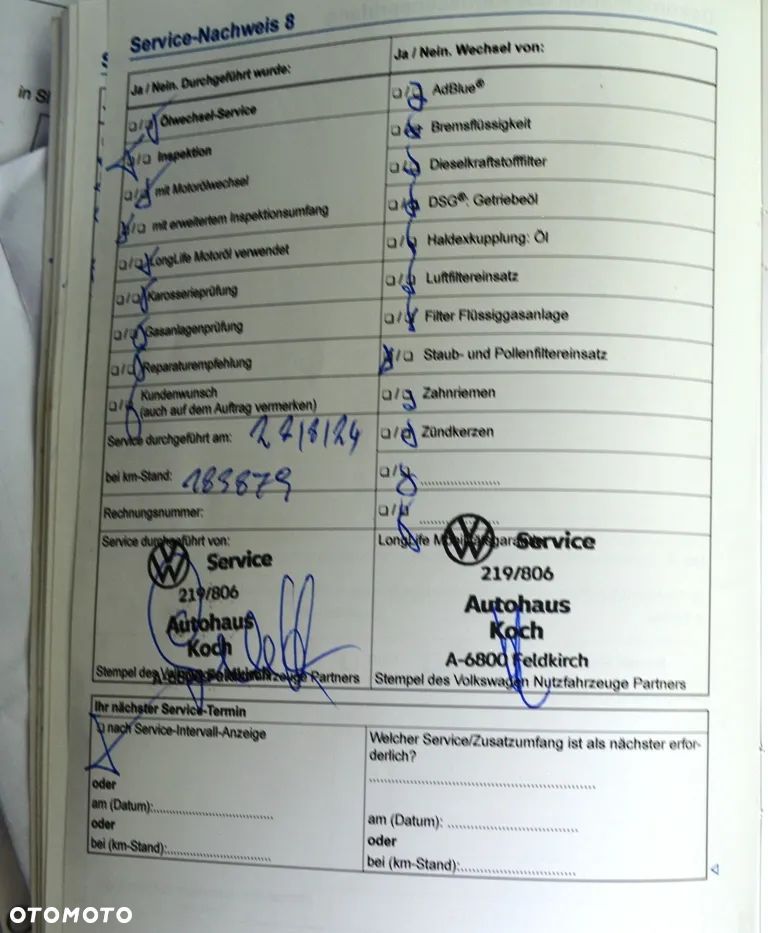 Service-Nachweis 8
in
Ja / Nein. Durchgeführt wurde:
Ölwechsel-Service
Inspektion
mit Motorölwechsel
mit erweitertem Inspektionsumfang
LongLife Motoröl verwendet
Karosserieprüfung
Gasanlagenprüfung
Reparaturempfehlung
Kundenwunsch
(auch auf dem Auftrag vermerken)
Service durchgeführt am: 27/8/24
bei km-Stand: 189879
Rechnungsnummer:
Service durchgeführt von:
Service
219/806
Autohaus
Koch
A-6800 Feldkirch
Stempel des Volkswagen Nutzfahrzeuge Partners
Ja / Nein. Wechsel von:
AdBlue®
Bremsflüssigkeit
Dieselkraftstofffilter
DSG®: Getriebeöl
Haldexkupplung: Öl
Luftfiltereinsatz
Filter Flüssiggasanlage
Staub- und Pollenfiltereinsatz
Zahnriemen
Zündkerzen
LongLife Mobilitätsgarantie
Service
219/806
Autohaus
Koch
A-6800 Feldkirch
Stempel des Volkswagen Nutzfahrzeuge Partners
Ihr nächster Service-Termin
nach Service-Intervall-Anzeige
oder
am (Datum):
oder
bei (km-Stand):
Welcher Service/Zusatzumfang ist als nächster erfor-
derlich?
am (Datum):
oder
bei (km-Stand):
OTOMOTO